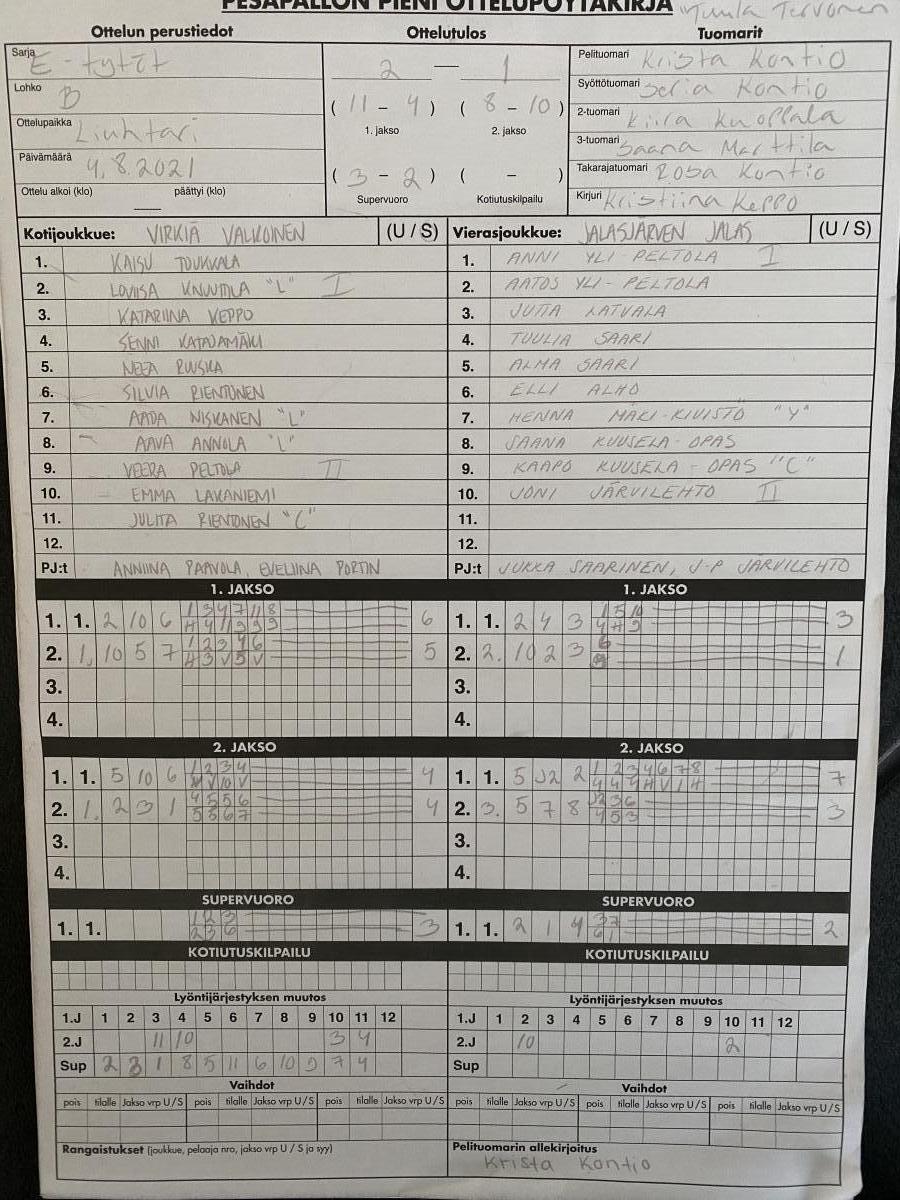 PESÄPALLON PIENI OTTELUPÖYTÄKIRJA "Tuula Tervonen
Ottelun perustiedot Ottelutulos Tuomarit
Sarja E-tytöt
Lohko B
Ottelupaikka Liuhtari
Päivämäärä 4.8.2021
Ottelu alkoi (klo) päättyi (klo)
2 — 1
( 11 - 4 ) ( 8 - 10 )
1. jakso 2. jakso
( 3 - 2 ) ( - )
Supervuoro Kotiutuskilpailu
Pelituomari Krista Kontio
Syöttötuomari Kontio
2-tuomari Kiira Kuoppala
3-tuomari Saana Marttila
Takarajatuomari Roosa Kontio
Kirjuri Kristiina Keppo
Kotijoukkue: VIRKIÄ VALKOINEN (U / S) Vierasjoukkue: JALASJÄRVEN JALAS (U / S)
1. KAISU TOUKKALA 1. ANNI YLI-PELTOLA I
2. LOVIISA KNUUTTILA "L" I 2. AATOS YLI-PELTOLA
3. KATARIINA KEPPO 3. JUTTA LATVALA
4. SENNI KATAJAMÄKI 4. TUULIA SAARI
5. NEEA RUUSKA 5. ALMA SAARI
6. SILVIA RIENTONEN 6. ELLI ALHO
7. AADA NISKANEN "L" 7. HENNA MÄKI-KIVISTÖ "Y"
8. AAVA ANNOLA "L" 8. SAANA KUUSELA-OPAS
9. VEERA PELTOLA II 9. KAAPO KUUSELA-OPAS "C"
10. EMMA LAKANIEMI 10. JONI JÄRVILEHTO II
11. JULITA RIENTONEN "C" 11.
12. 12.
PJ:t ANNIINA PAAVOLA, EVELIINA PORTIN PJ:t JUKKA SAARINEN, J-P JÄRVILEHTO
1. JAKSO 1. JAKSO
1. 1. 2 10 6 1 3 4 7 11 8 6 1. 1. 2 4 3 1 5 10 3
H 4 11 9 9 9 4 H 9
2. 1. 10 5 7 1 2 3 4 6 5 2. 2. 10 2 3 6 1
H 3 V 5 V
3. 3.
4. 4.
2. JAKSO 2. JAKSO
1. 1. 5 10 6 1 2 3 4 4 1. 1. 5 J2 2 1 2 3 4 6 7 8 7
V 10 V 4 4 4 H V 1 H
2. 1. 2 3 1 4 5 5 6 4 2. 3. 5 7 8 J2 3 6 3
5 5 6 7 4 5 3
3. 3.
4. 4.
SUPERVUORO SUPERVUORO
1. 1. 1 2 3 3 1. 1. 2 1 4 2
2 3 6
KOTIUTUSKILPAILU KOTIUTUSKILPAILU
Lyöntijärjestyksen muutos Lyöntijärjestyksen muutos
1.J 1 2 3 4 5 6 7 8 9 10 11 12 1.J 1 2 3 4 5 6 7 8 9 10 11 12
2.J 11 10 3 4 2.J 10 2
Sup 2 3 1 8 5 11 6 10 9 7 4 Sup
Vaihdot Vaihdot
pois tilalle Jakso vrp U/S pois tilalle Jakso vrp U/S pois tilalle Jakso vrp U/S pois tilalle Jakso vrp U/S pois tilalle Jakso vrp U/S pois tilalle Jakso vrp U/S
Rangaistukset (joukkue, pelaaja nro, jakso vrp U / S ja syy) Pelituomarin allekirjoitus
Krista Kontio